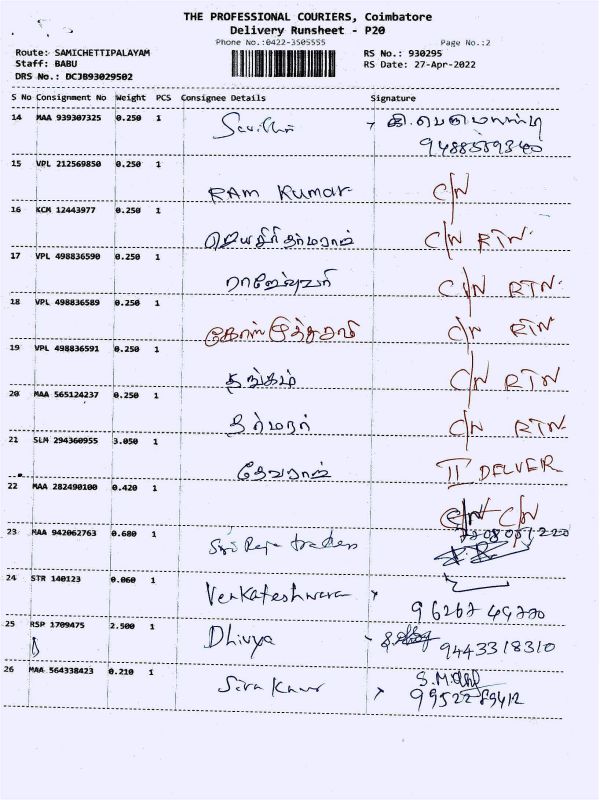 THE PROFESSIONAL COURIERS, Coimbatore
Delivery Runsheet - P20
Phone No.:0422-3505555 Page No.:2
Route: SAMICHETTIPALAYAM RS No.: 930295
Staff: BABU RS Date: 27-Apr-2022
DRS No.: DCJB93029502
S No Consignment No Weight PCS Consignee Details Signature
14 MAA 939307325 0.250 1
15 VPL 212569850 0.250 1
RAM Kumar C/N
16 KCM 12443977 0.250 1
C/N RTN
17 VPL 498836590 0.250 1
ராஜேஷ்வரி C/N RTN
18 VPL 498836589 0.250 1
C/N RTN
19 VPL 498836591 0.250 1
தங்கம் C/N RTN
20 MAA 565124237 0.250 1
C/N RTN
21 SLM 294360955 3.050 1
தேவராஜ் II DELVER
22 MAA 282490100 0.420 1
C/N
23 MAA 942062763 0.680 1
Sri Raja traders
24 STR 140123 0.060 1
Venkateshwara
25 RSP 1709475 2.500 1
Dhivya 9443318310
26 MAA 564338423 0.210 1
Siva Kumar S.M.